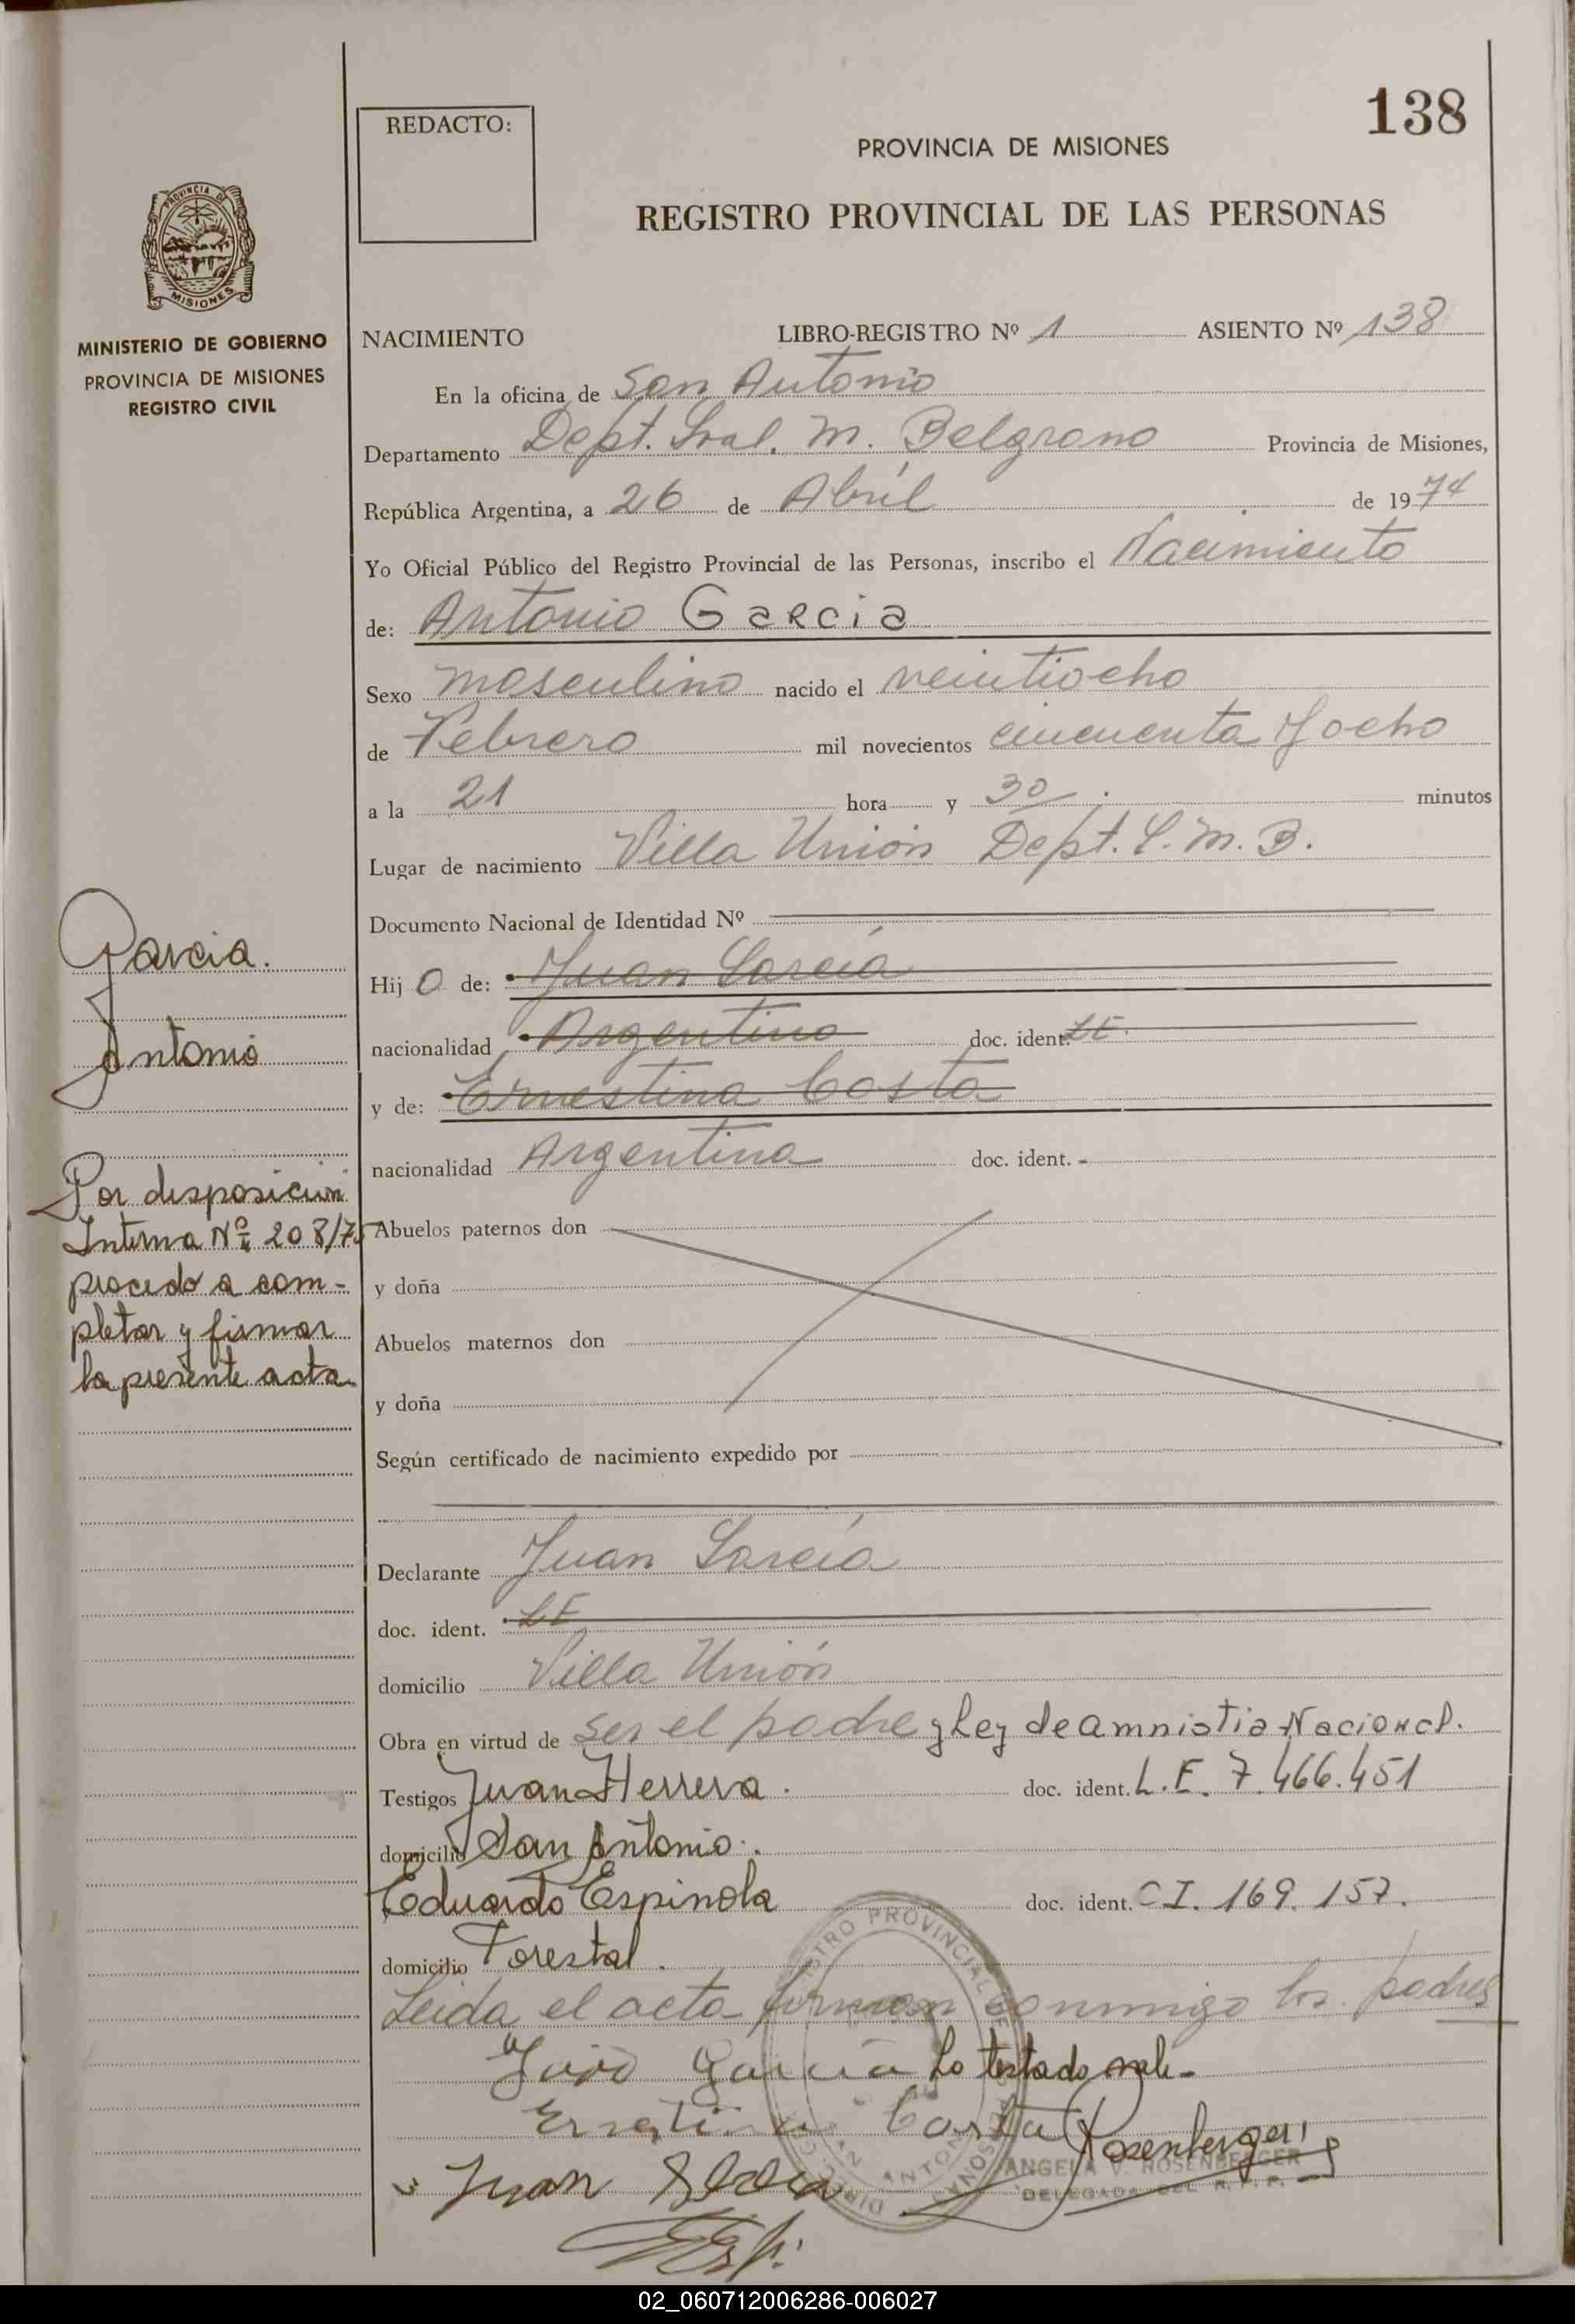 138
REDACTO:
PROVINCIA DE MISIONES
REGISTRO PROVINCIAL DE LAS PERSONAS
PROVINCIA DE
MISIONES
MINISTERIO DE GOBIERNO
PROVINCIA DE MISIONES
REGISTRO CIVIL
NACIMIENTO LIBRO-REGISTRO Nº 1 ASIENTO Nº 138
En la oficina de San Antonio
Departamento Dept. Gral. M. Belgrano Provincia de Misiones,
República Argentina, a 26 de Abril de 1974
Yo Oficial Público del Registro Provincial de las Personas, inscribo el Nacimiento
de: Antonio Garcia
Sexo masculino nacido el veintiocho
de Febrero mil novecientos cincuenta y ocho
a la 21 hora y 30 minutos
Lugar de nacimiento Villa Unión Dept. G. M. B.
Documento Nacional de Identidad Nº
Hij o de: Juan García
nacionalidad Argentino doc. ident. LE
y de: Ernestina Costa
nacionalidad Argentina doc. ident. -
Abuelos paternos don
y doña
Abuelos maternos don
y doña
Según certificado de nacimiento expedido por
Declarante Juan García
doc. ident. LE
domicilio Villa Unión
Obra en virtud de ser el padre y Ley de amnistia Nacional.
Testigos Juan Herrera. doc. ident. L.E. 7.466.451
domicilio San Antonio.
Eduardo Espinola doc. ident. C I. 169.157.
domicilio Forestal.
Leida el acta firman conmigo los padres
Garcia Lo testado vale-
Costa Rosenberger
Juan
ANGELA V. ROSENBERGER
DELEGADA DEL R. P. P.
Garcia.
Antonio
Por disposición
Interna Nº 208/75
procedo a com-
pletar y firmar
la presente acta
02_060712006286-006027